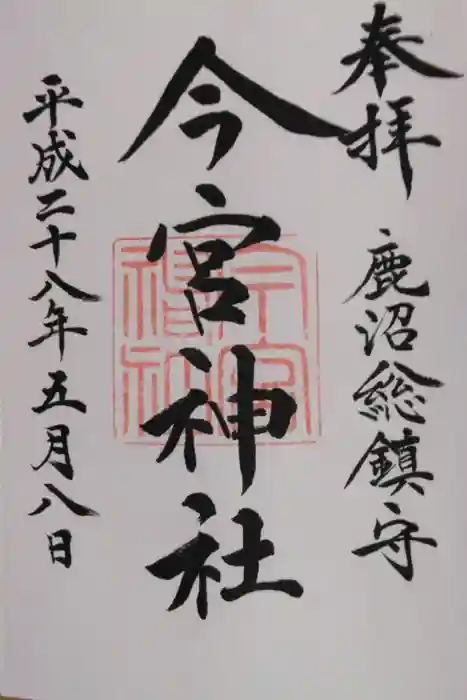 奉拝
鹿沼総鎮守
今宮神社
平成二十八年五月八日
今宮神社